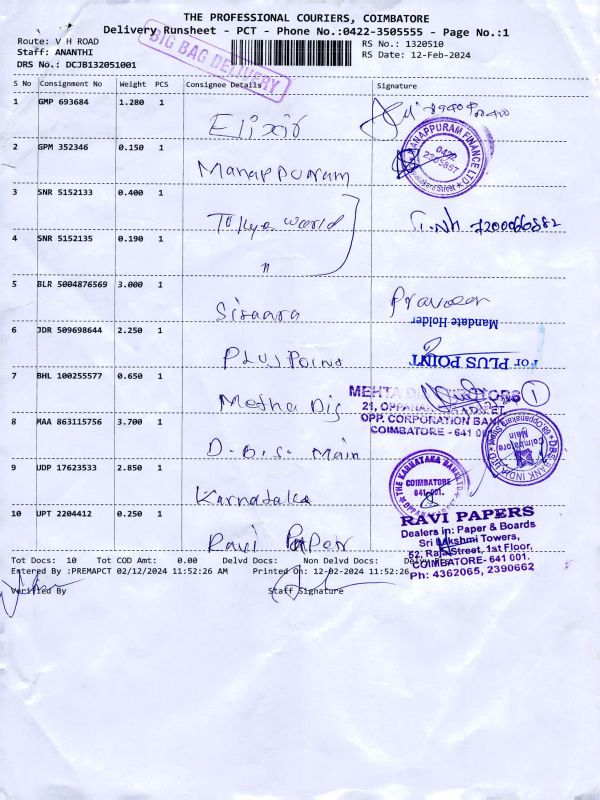 THE PROFESSIONAL COURIERS, COIMBATORE
Delivery Runsheet - PCT - Phone No.:0422-3505555 - Page No.:1
Route: V H ROAD
Staff: ANANTHI
DRS No.: DCJB132051001
BIG BAG DELIVERY
RS No.: 1320510
RS Date: 12-Feb-2024
S No Consignment No Weight PCS Consignee Details Signature
1 GMP 693684 1.280 1 Elixir
2 GPM 352346 0.150 1 Manappuram
MANAPPURAM FINANCE LTD 0422
3 SNR 5152133 0.400 1 Tokyo world
4 SNR 5152135 0.190 1 "
5 BLR 5004876569 3.000 1 Sisaara Praveen
6 JDR 509698644 2.250 1 Plus Point
For PLUS POINT
Mandate Holder
7 BHL 100255577 0.650 1 Metha Dis
MEHTA
21, OPPANAKARA
OPP. CORPORATION BANK
COIMBATORE - 641 001
1
8 MAA 863115756 3.700 1 D.B.S. Main
DBS BANK INDIA LTD Coimbatore Main
9 UDP 17623533 2.850 1 Karnataka
THE KARNATAKA BANK LTD
COIMBATORE
641 001.
10 UPT 2204412 0.250 1 Ravi Paper
RAVI PAPERS
Dealers in: Paper & Boards
Sri Lakshmi Towers,
52, Raja Street, 1st Floor,
COIMBATORE- 641 001.
Ph: 4362065, 2390662
Tot Docs: 10 Tot COD Amt: 0.00 Delvd Docs: Non Delvd Docs:
Entered By :PREMAPCT 02/12/2024 11:52:26 AM Printed On: 12-02-2024 11:52:26
Verified By Staff Signature